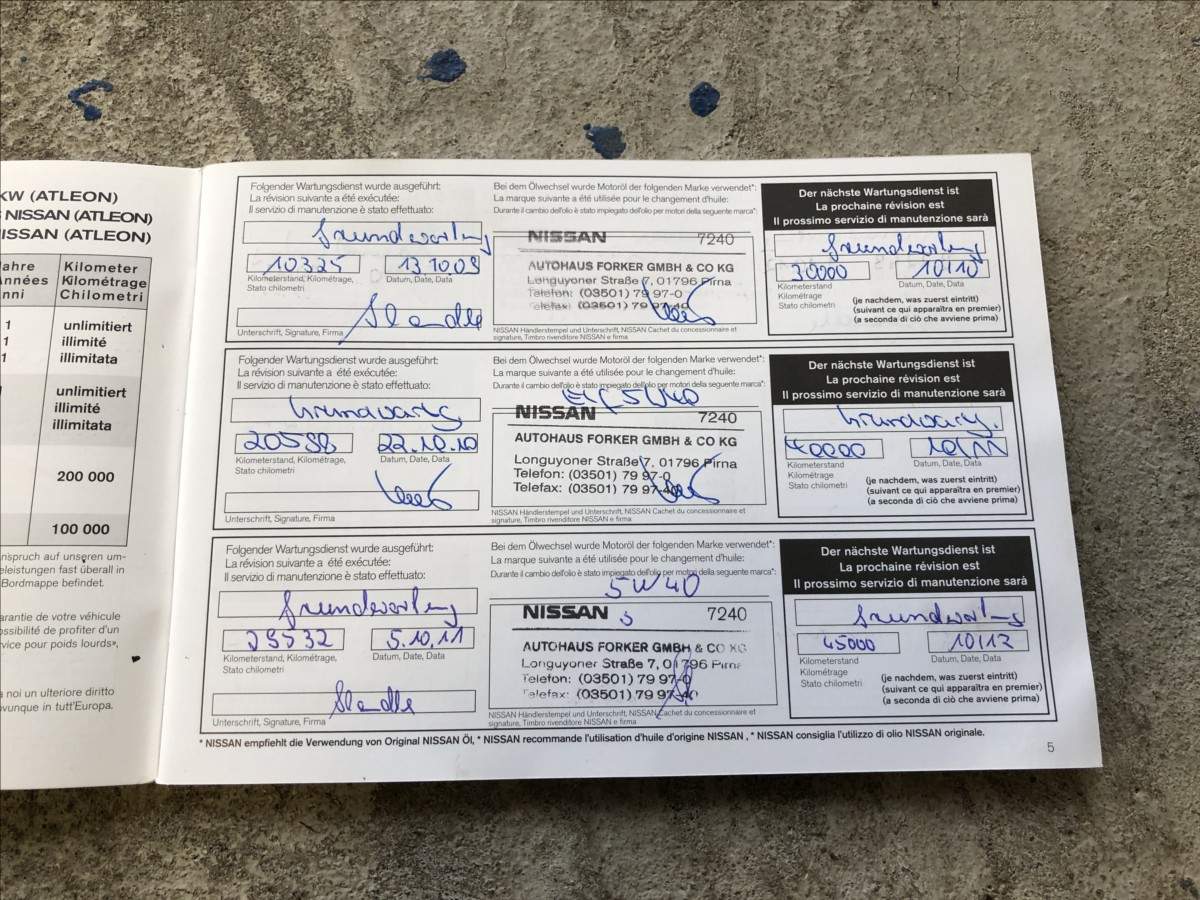 KW (ATLEON)
NISSAN (ATLEON)
ISSAN (ATLEON)
Jahre
Années
Anni
Kilometer
Kilométrage
Chilometri
1
1
1
unlimitiert
illimité
illimitata
unlimitiert
illimité
illimitata
200 000
100 000
nspruch auf unseren um-
eleistungen fast überall in
Bordmappe befindet.
arantie de votre véhicule
ossibilité de profiter d'un
vice pour poids lourds»,
a noi un ulteriore diritto
ovunque in tutt'Europa.
Folgender Wartungsdienst wurde ausgeführt:
La révision suivante a été exécutée:
Il servizio di manutenzione è stato effettuato:
Grundwartung
10325 13.10.09
Kilometerstand, Kilométrage,
Stato chilometri
Datum, Date, Data
Unterschrift, Signature, Firma
Bei dem Ölwechsel wurde Motoröl der folgenden Marke verwendet*:
La marque suivante a été utilisée pour le changement d'huile:
Durante il cambio dell'olio è stato impiegato dell'olio per motori della seguente marca*:
NISSAN 7240
AUTOHAUS FORKER GMBH & CO KG
Longuyoner Straße 7, 01796 Pirna
Telefon: (03501) 79 97-0
Telefax: (03501) 79 97-40
NISSAN Händlerstempel und Unterschrift, NISSAN Cachet du concessionnaire et
signature, Timbro rivenditore NISSAN e firma
Der nächste Wartungsdienst ist
La prochaine révision est
Il prossimo servizio di manutenzione sarà
Grundwartung
30000 10/10
Kilometerstand
Kilométrage
Stato chilometri
Datum, Date, Data
(je nachdem, was zuerst eintritt)
(suivant ce qui apparaîtra en premier)
(a seconda di ciò che avviene prima)
Folgender Wartungsdienst wurde ausgeführt:
La révision suivante a été exécutée:
Il servizio di manutenzione è stato effettuato:
Grundwartg
20588 22.10.10
Kilometerstand, Kilométrage,
Stato chilometri
Datum, Date, Data
Unterschrift, Signature, Firma
Bei dem Ölwechsel wurde Motoröl der folgenden Marke verwendet*:
La marque suivante a été utilisée pour le changement d'huile:
Durante il cambio dell'olio è stato impiegato dell'olio per motori della seguente marca*:
Elf 5W40
NISSAN 7240
AUTOHAUS FORKER GMBH & CO KG
Longuyoner Straße 7, 01796 Pirna
Telefon: (03501) 79 97-0
Telefax: (03501) 79 97-40
NISSAN Händlerstempel und Unterschrift, NISSAN Cachet du concessionnaire et
signature, Timbro rivenditore NISSAN e firma
Der nächste Wartungsdienst ist
La prochaine révision est
Il prossimo servizio di manutenzione sarà
Grundwartg.
40000 10/11
Kilometerstand
Kilométrage
Stato chilometri
Datum, Date, Data
(je nachdem, was zuerst eintritt)
(suivant ce qui apparaîtra en premier)
(a seconda di ciò che avviene prima)
Folgender Wartungsdienst wurde ausgeführt:
La révision suivante a été exécutée:
Il servizio di manutenzione è stato effettuato:
Grundwartung
29532 5.10.11
Kilometerstand, Kilométrage,
Stato chilometri
Datum, Date, Data
Unterschrift, Signature, Firma
Bei dem Ölwechsel wurde Motoröl der folgenden Marke verwendet*:
La marque suivante a été utilisée pour le changement d'huile:
Durante il cambio dell'olio è stato impiegato dell'olio per motori della seguente marca*:
5W40
NISSAN 7240
AUTOHAUS FORKER GMBH & CO KG
Longuyoner Straße 7, 01796 Pirna
Telefon: (03501) 79 97-0
Telefax: (03501) 79 97-40
NISSAN Händlerstempel und Unterschrift, NISSAN Cachet du concessionnaire et
signature, Timbro rivenditore NISSAN e firma
Der nächste Wartungsdienst ist
La prochaine révision est
Il prossimo servizio di manutenzione sarà
Grundwartung
45000 10/12
Kilometerstand
Kilométrage
Stato chilometri
Datum, Date, Data
(je nachdem, was zuerst eintritt)
(suivant ce qui apparaîtra en premier)
(a seconda di ciò che avviene prima)
* NISSAN empfiehlt die Verwendung von Original NISSAN Öl, * NISSAN recommande l'utilisation d'huile d'origine NISSAN , * NISSAN consiglia l'utilizzo di olio NISSAN originale.
5